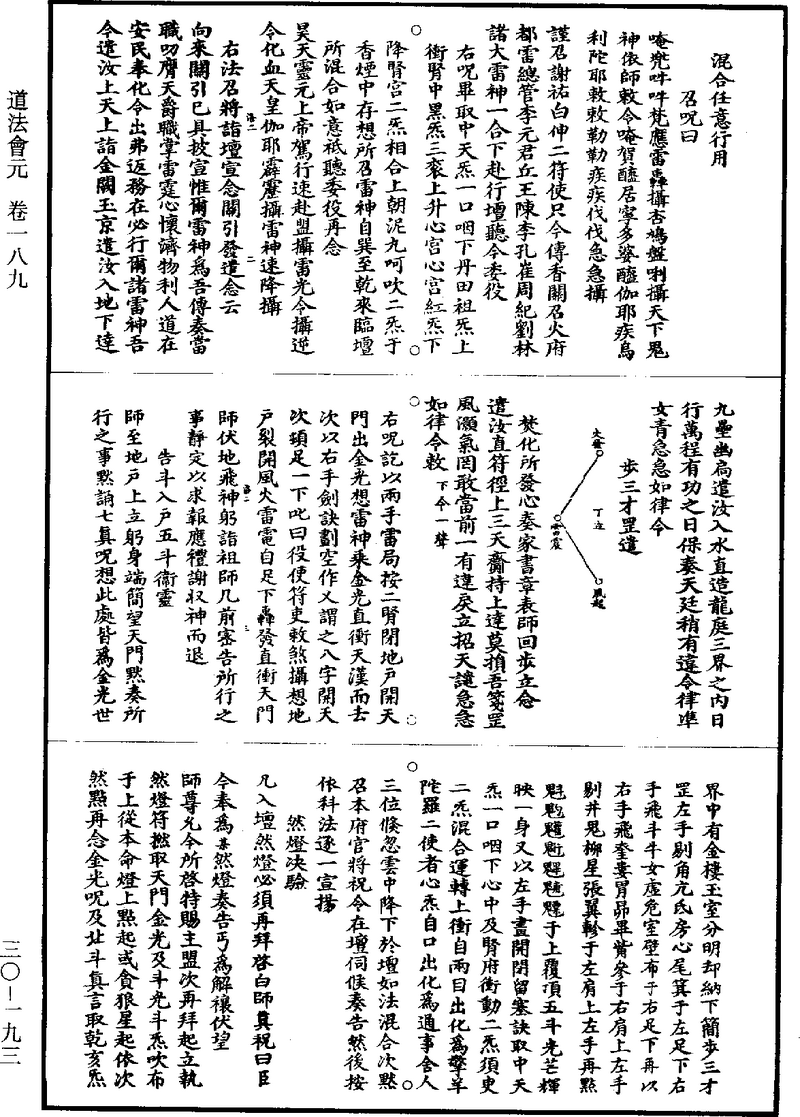 道法會元　卷一八九
混合任意行用
召呪曰
唵㘓吽吽梵應雷轟攝杏鳩盤唎攝天下鬼
神依師敕令唵賀醯居寧多婆醯伽耶疾鳥
利陀耶敕敕勒勒疾疾伐伐急急攝
謹召謝祐白仲二符使只今傳香關召火府
都雷總管李元君丘王陳李孔崔周紀劉林
諸大雷神一合下赴行壇聽令委役
右呪畢取中天炁一口咽下丹田祖炁上
衝腎中黑炁三衮上升心宮心宮紅炁下
降腎宮二炁相合上朝泥九呵吹二炁于
香煙中存想所召雷神自巽至乾來臨壇
所混合如意祗聽委役再念
昊天靈元上帝駕行速赴盟攝雷光令攝逆
令化血天皇伽耶霹靂攝雷神速降攝
右法召將詣壇宣念關引發遣念云
向來關引已具披宣惟爾雷神爲吾傳奏當
職叨膺天爵職掌雷霆心懷濟物利人道在
安民奉化令出弗返務在必行爾諸雷神吾
今遣汝上天上詣金闕玉京遣汝入地下達
九壘幽扃遣汝入水直造龍庭三界之內日
行萬程有功之日保奏天廷稍有違令律準
女青急急如律令
步三才罡遣
丁立
風起
焚化所發心奏家書章表師回步立念
遣汝直符徑上三天齎持上達莫損吾箋罡
風灝氣罔敢當前一有違戾立招天譴急急
如律令敕　下令一聲
右呪訖以兩手雷局按二腎閉地戶開天
門出金光想雷神乘金光直衝天漢而去
次以右手劍訣劃空作乂謂之八字開天
次頓足一下叱曰役使符吏敕煞攝想地
戶裂開風火雷電自足下轟發直衝天門
師伏地飛神躬詣祖師几前密告所行之
事靜定以求報應禮謝収神而退
告斗入戶五斗衞靈
師至地戶上立躬身端簡望天門黙奏所
行之事黙誦七真呪想此處皆爲金光世
界中有金樓玉室分明却納下簡步三才
罡左手剔角亢氐房心尾箕于左足下右
手飛斗牛女虛危室壁布于右足下再以
右手飛奎婁胃昴畢觜參于右肩上左手
剔井鬼柳星張翼軫于左肩上左手再點
魁𩲃䰢魓𩳐䰨魒于上覆頂五斗光芒輝
映一身又以左手畫開閉留塞訣取中天
炁一口咽下心中及腎府衝動二炁須臾
二炁混合運轉上衝自兩目出化爲擎羊
陀羅二使者心炁自口出化爲通事舍人
三位倏忽雲中降下於壇如法混合次黙
召本府官將祝令在壇伺候奏告然後按
依科法逐一宣揚
然燈決驗
凡入壇然燈必須再拜啓白師真祝曰臣
今奉爲某然燈奏告丐爲解禳伏望
師尊允今所啓特賜主盟次再拜起立執
然燈符撚取天門金光及斗光斗炁吹布
于上從本命燈上點起或貪狼星起依次
然點再念金光呪及北斗真言取乾亥炁
三〇—一九三